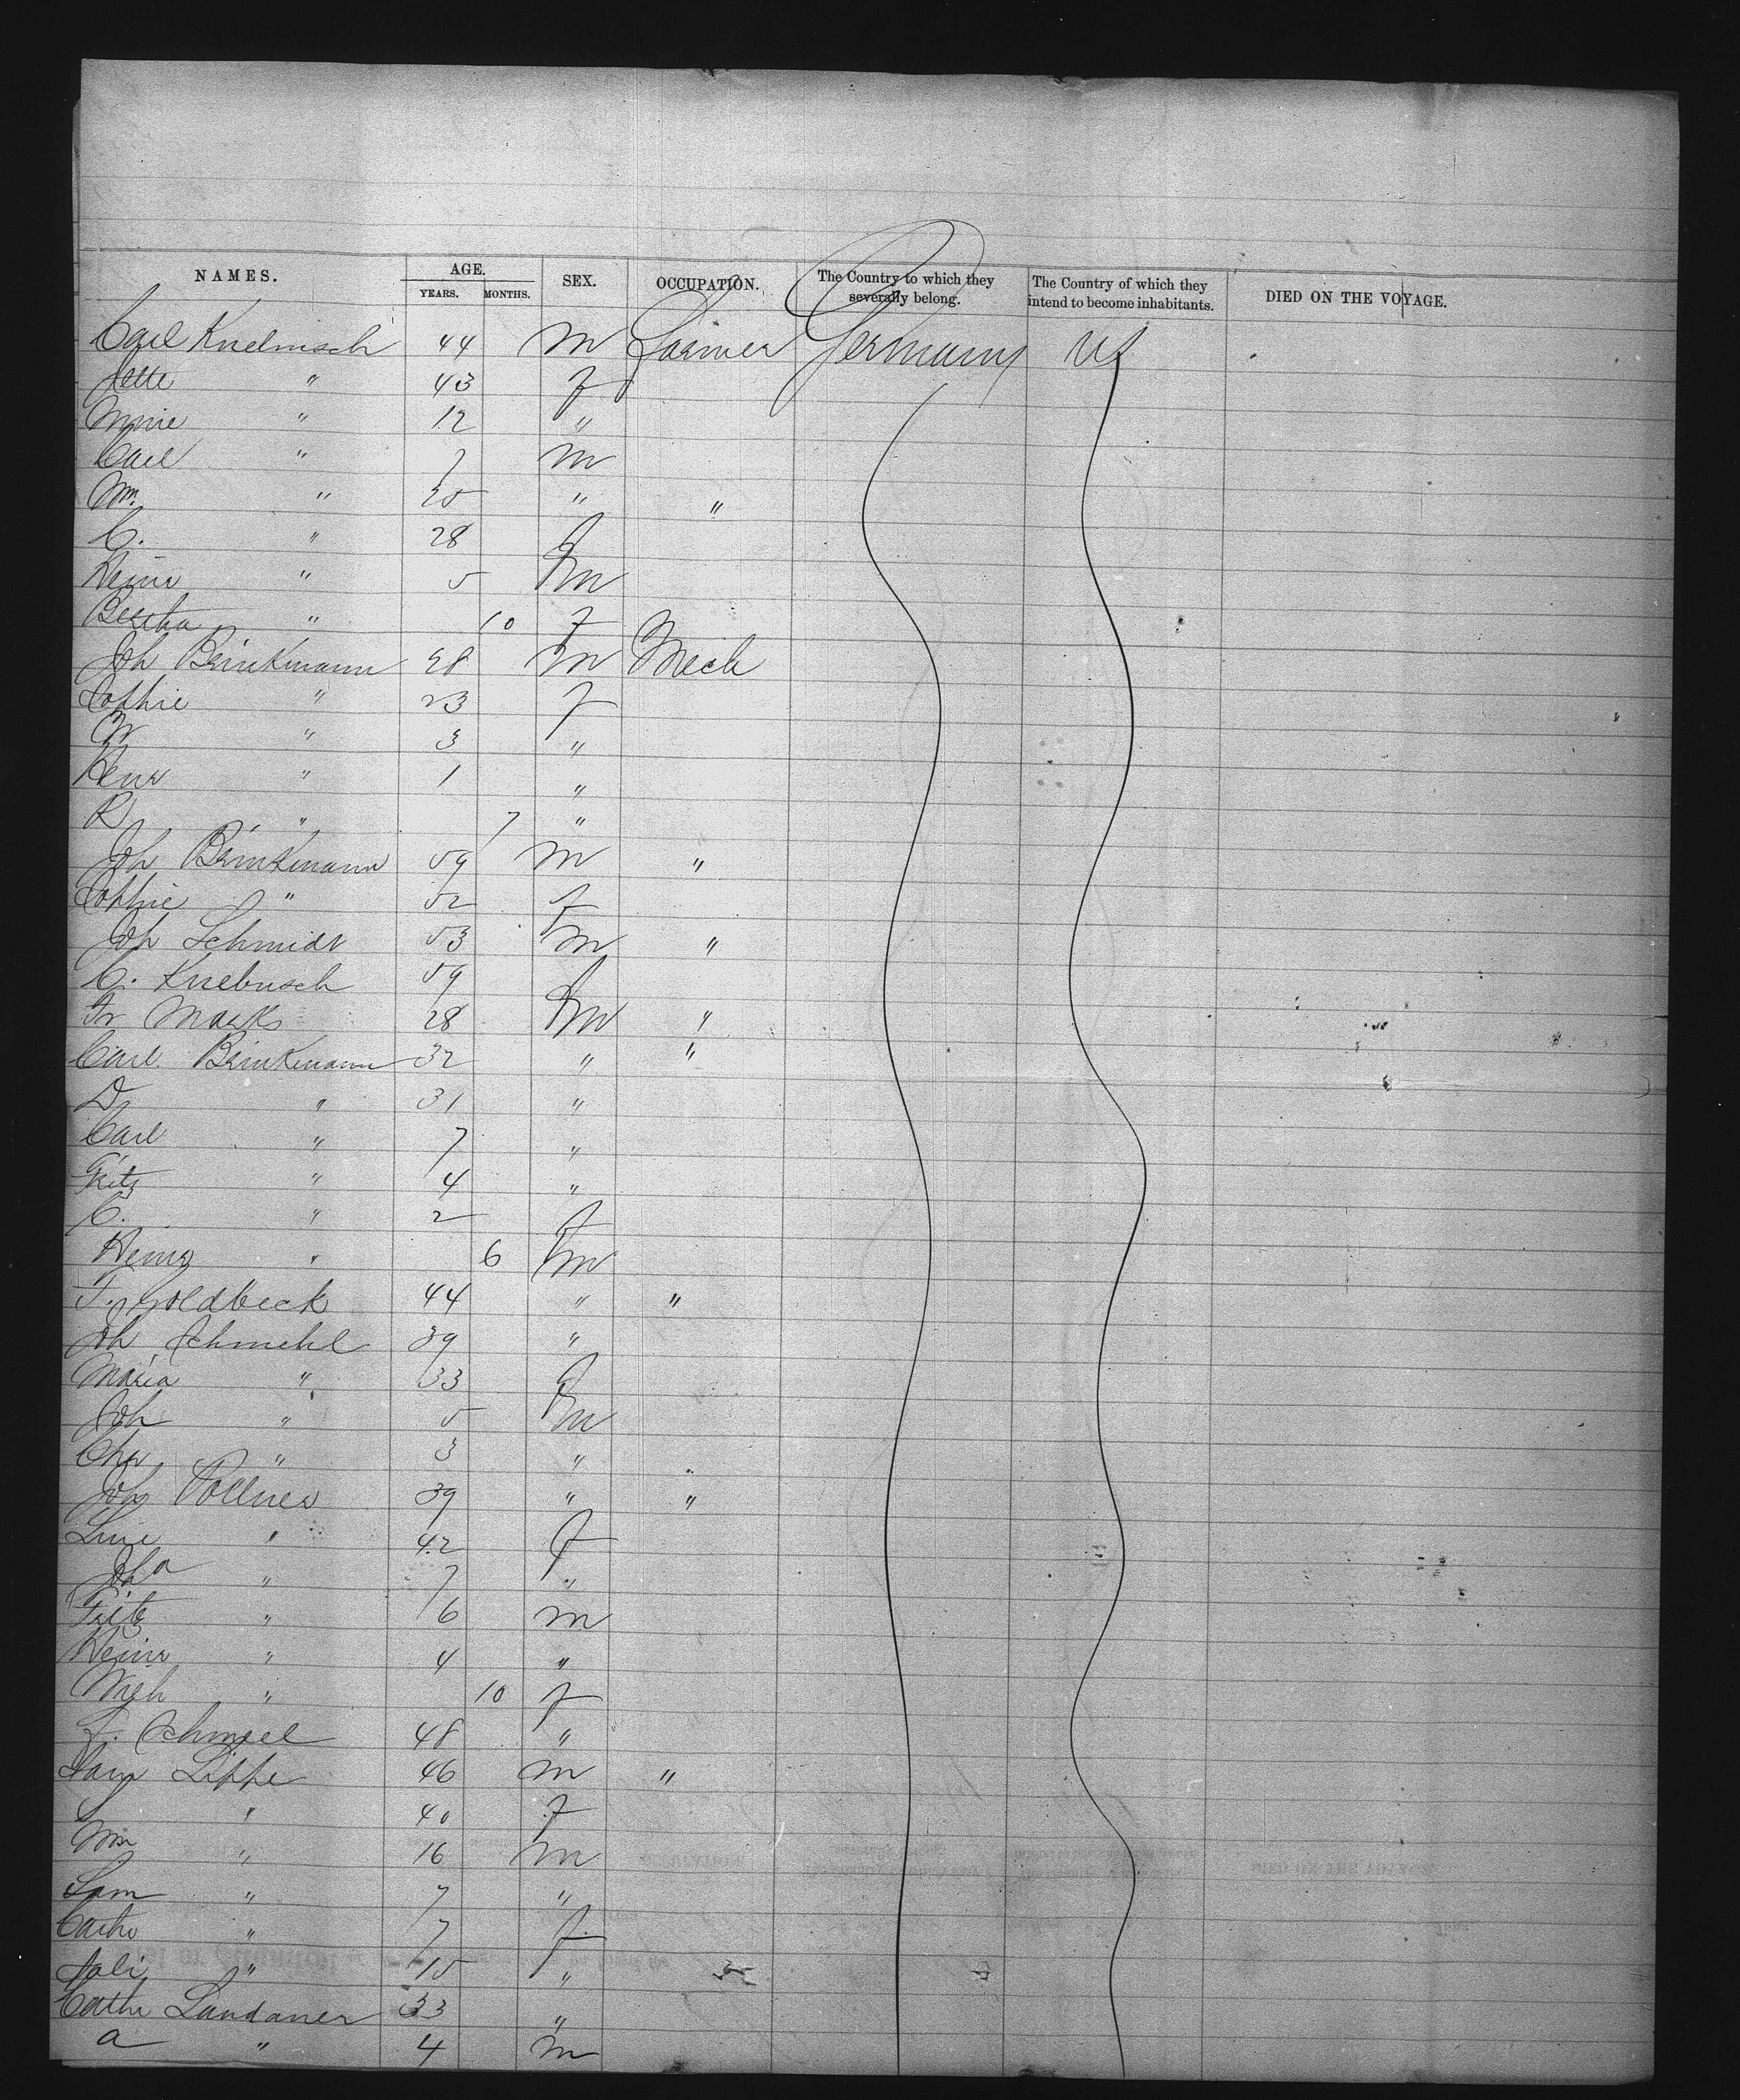 NAMES. AGE. SEX. OCCUPATION. The Country to which they severally belong. The Country of which they intend to become inhabitants. DIED ON THE VOYAGE.
YEARS. MONTHS.
Carl 44 m Farmer Germany US
Jette " 43 f
Minie " 12 "
Carl " 7 m
Wm. " "  "
C. " 28 f
Heinr " 5 m
Bertha " 10 f
Joh Brinkmann 28 m Mech
Sophie " 23 f
W " 3 "
Henr " 1 "
R " 7 "
Joh Brinkmann 59 m "
Sophie " 52 f
Joh Schmidt 53 m "
C. Knebusch 59 f
Fr Marks 28 m "
Carl Brinkmann 32 " "
D " 31 "
Carl " 7 "
Fritz " 4 "
C. " 2 f
Heinr " 6 m
F. Goldbeck 44 " "
Joh Schmehl 39 "
Maria " 33 f
Joh " 5 m
Chr " 3 "
Joh Pollner 39 " "
Line " 42 f
Joha " 7 "
Fritz " 6 m
Heinr " 4 "
" 10 f
48 "
Lippe 46 m "
" 40 f
Wm " 16 m
Sam " 7 "
Cath " 7 f
Sali " 15 "
Cath Landauer 33 "
a " 4 m